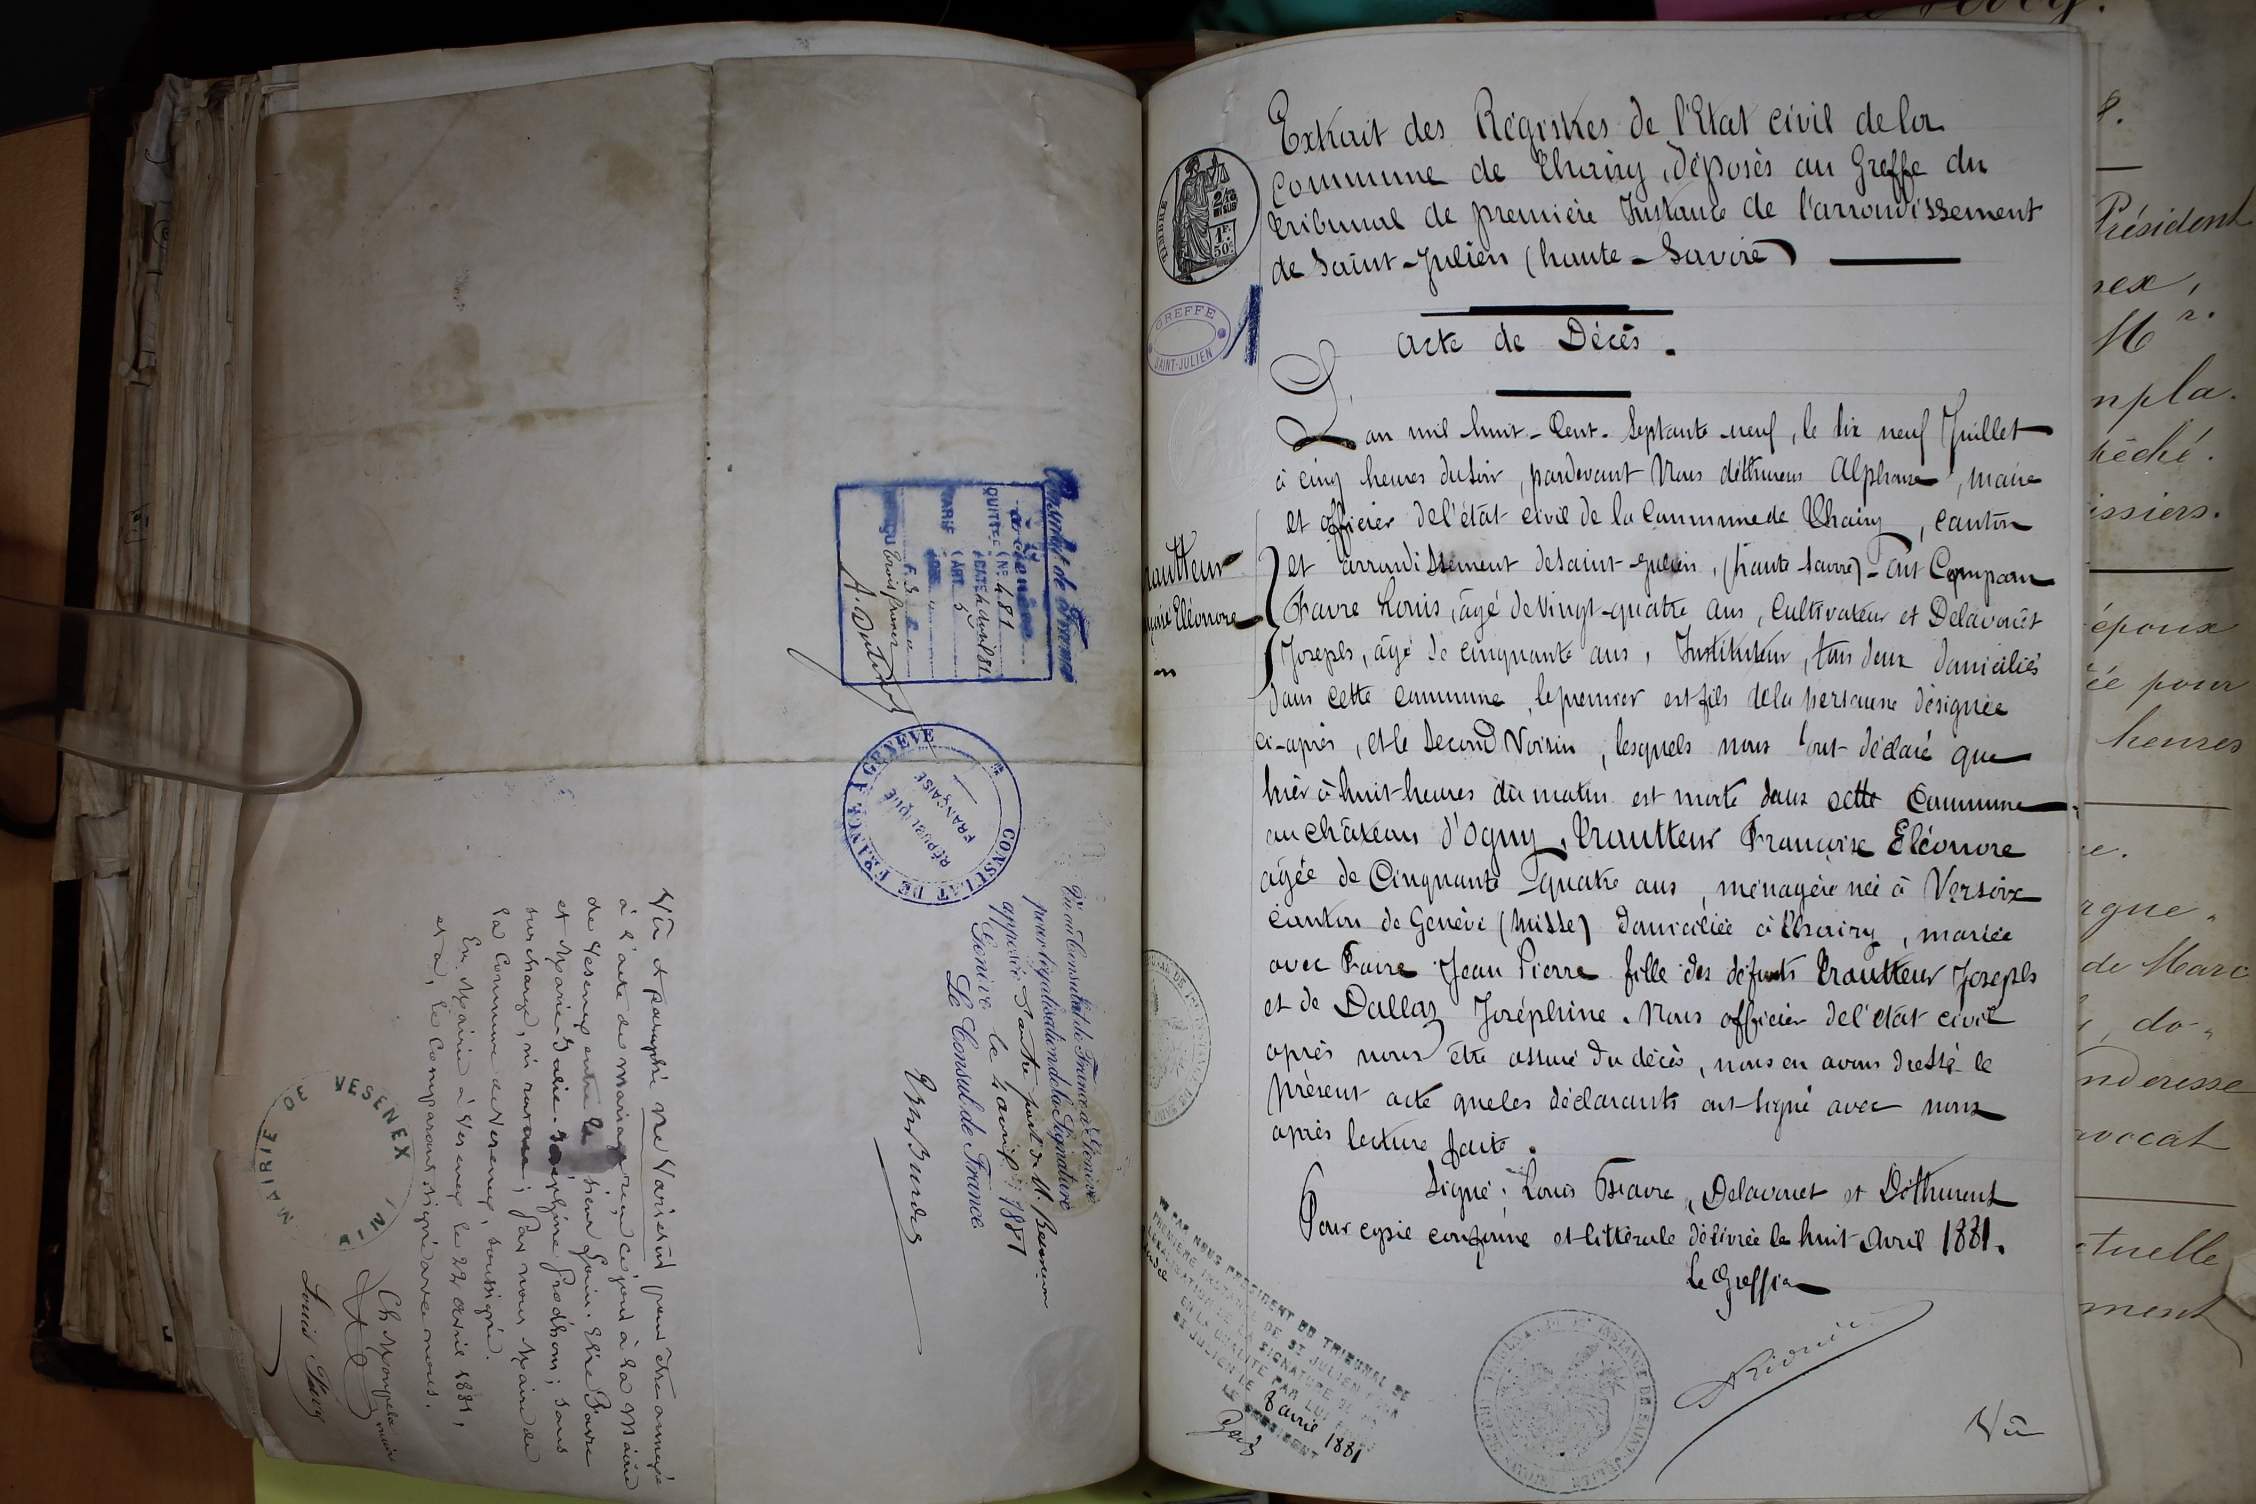 Consulat de France
à Genève
QUITTCE (Nº 481
DATE 4 avril 81
TARIF (ART. 5
F. 3
REÇU trois francs
CONSULAT DE FRANCE A GENÈVE
RÉPUBLIQUE
FRANÇAISE
Vu au Consulat de France à Genève
pour légalisation de la Signature
apposée d'autre part de M.
Genève le 4 avril 1881
Le Consul de France
Vu & paraphé ne varietur pour être annexé
à l'acte de mariage reçu ce jour à la Mairie
de Vesenex entre le sieur Louis
et Marie-Julie-Joséphine Prodhom; sans
surcharge, ni rature; Par nous Maire de
la Commune de Vesenex, soussigné.
En Mairie à Vesenex le 22 avril 1881,
et a, le Comparant signé avec nous.
Louis Favre
MAIRIE DE VESENEX
AIN
TIMBRE
1F.
50c.
GREFFE
SAINT-JULIEN
Extrait des Régistres de l'Etat civil de la
Commune de Thairy, déposés au Greffe du
tribunal de première Instance de l'arrondissement
de Saint-Julien (haute-Savoie)
Acte de Décès.
L'an mil huit-Cent-Septante neuf, le dix neuf Juillet
à cinq heures du Soir, pardevant Nous déthurens Alphonse, maire
et officier de l'état civil de la Commune de Thairy, canton
et arrondissement de Saint-Julien, (haute Savoie)- ont Comparu
Favre Louis, âgé de vingt-quatre ans, Cultivateur et Delavouët
Joseph, âgé de cinquante ans, Instituteur, tous deux domiciliés
dans cette commune, le premier est fils de la personne désignée
ci-après, et le Second Voisin, lesquels nous ont déclaré que
hier à huit-heures du matin est morte dans cette Commune
au château d'Ogny, Trautteur Françoise Eléonore
âgée de Cinquante-quatre ans, ménagère née à Versoix
Canton de Genève (Suisse) domiciliée à Thairy, mariée
avec Favre Jean Pierre fille des défunts Trautteur Joseph
et de Dallaz Joséphine. Nous officier de l'état civil
après nous être assuré du décès, nous en avons dressé le
présent acte que les déclarants ont signé avec nous
après lecture faite.
Signé, Louis Favre, Delavouet et Déthurent
Pour copie conforme et littérale délivrée le huit Avril 1881.
Le Greffier
Vu
rautteur
Eléonore
VU PAR NOUS PRESIDENT DU TRIBUNAL DE
PREMIERE INSTANCE DE ST JULIEN POUR
LEGALISATION DE LA SIGNATURE DE Mr
EN LA QUALITE PAR LUI PRISE
ST JULIEN LE 8 avril 1881
LE PRESIDENT
8.
Président
nex,
Mr.
mpla.
pêché.
issiers.
époux
ée pour
heures
de Marc
do-
nderesse
avocat
tuelle
ment